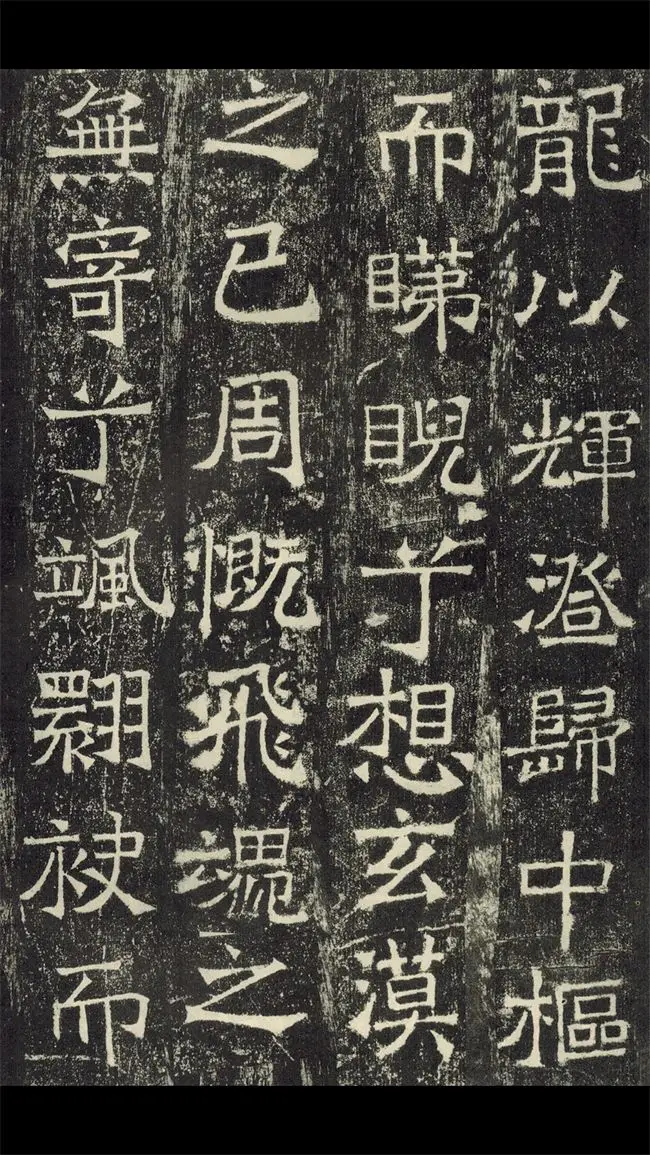 龍以輝澄歸中樞
而睇睨兮想玄漠
之已周慨飛之
無寄兮颯翾袂而